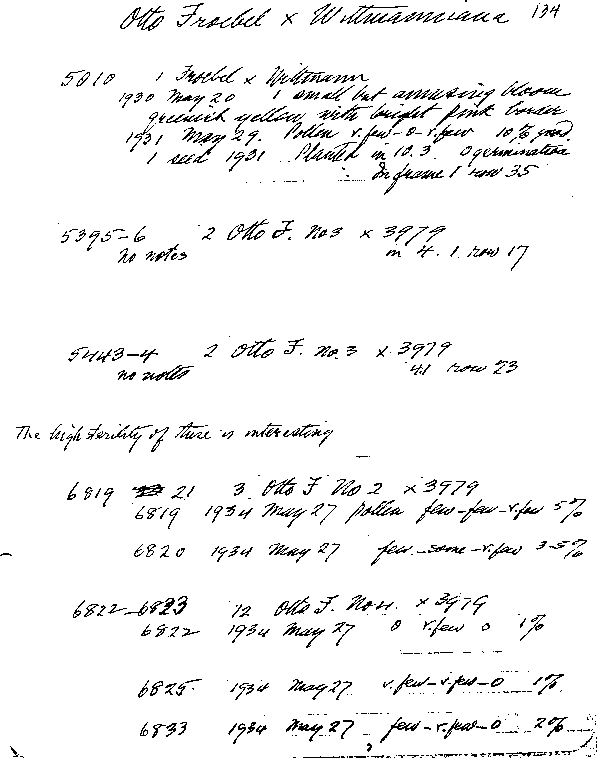 Otto Froebel x Wittmanniana 134
5010 1 Froebel x Wittmann
1930 May 20 1 small but amazing bloom
greenish yellow, with bright pink border
1931 May 29. Pollen v.few-0-v.few 10% good
1 seed 1931 Planted in 10.3. 0 germination
In frame 1 row 35
5395-6 2 Otto F. No 3 x 3979
no notes in 4.1. row 17
5443-4 2 Otto F. No. 3 x 3979
no notes 4.1 row 23
The high fertility of these is interesting
6819 21 3 Otto F No 2 x 3979
6819 1934 May 27 pollen few-few-v.few 5%
6820 1934 May 27 few-some-v.few 3-5%
6822-6823 12 Otto F. No 4. x 3979
6822 1934 May 27 0 v.few 0 1%
6825 1934 May 27 v.few-v.few-0 1%
6833 1934 May 27 few-v.few-0 2%